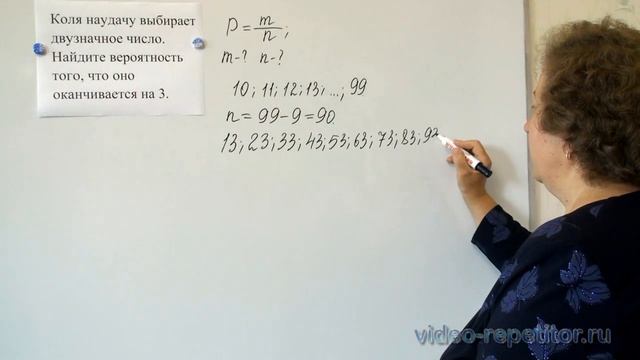 Коля наудачу выбирает
двузначное число.
Найдите вероятность
того, что оно
оканчивается на 3.
P = m/n ;
m-? n-?
10; 11; 12; 13; ...; 99
n = 99 - 9 = 90.
13; 23; 33; 43; 53; 63; 73; 83; 93
video-repetitor.ru